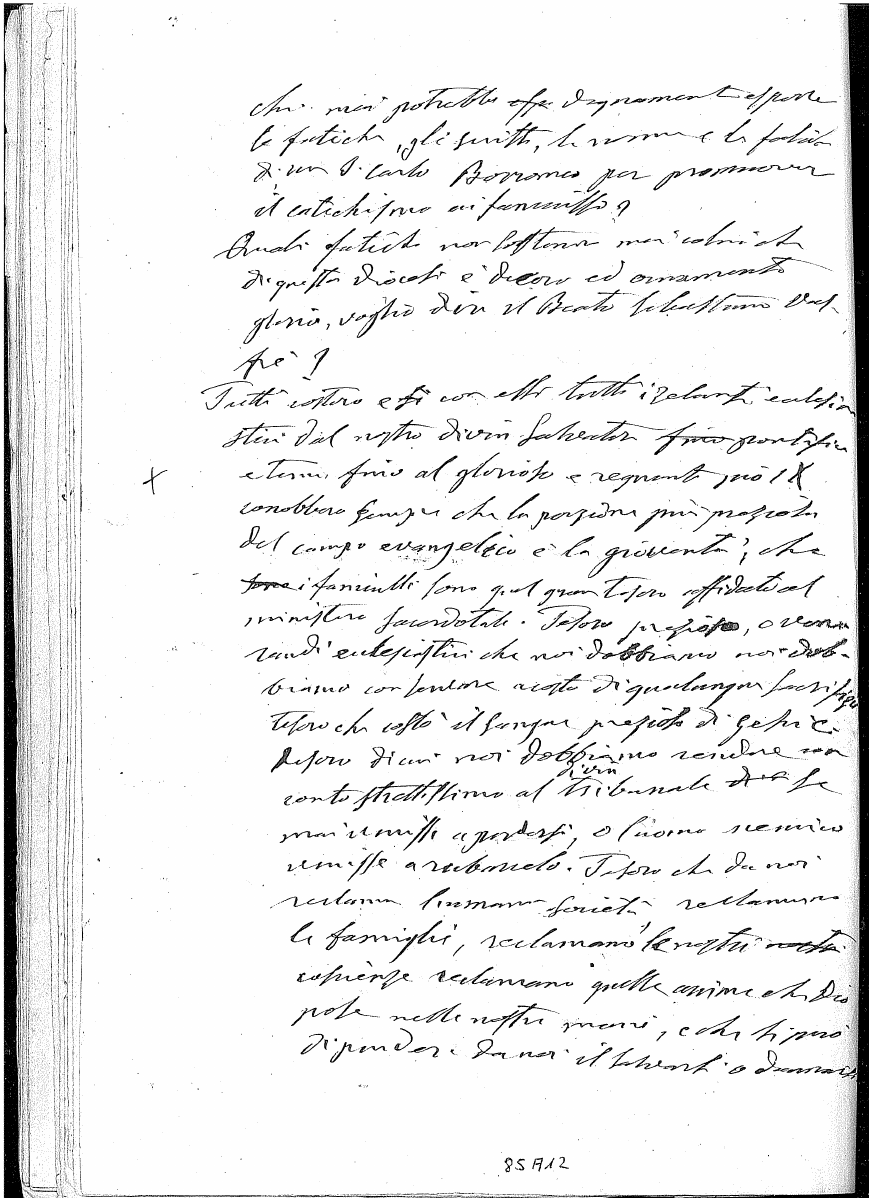 chi mai potrebbe degnamente esporre
le fatiche, gli scritti, le norme e lo
di un S. Carlo Borromeo per promuover
il catechismo ai fanciulli?
Quali fatiche non sostenne mai colui che
di questa diocesi è decoro ed ornamento
gloria, voglio dire il Beato Sebastiano Val-
frè?
Tutti costoro e si con essi tutti i zelanti ecclesia
stici dal nostro divin Salvatore fino pontefice
fino al glorioso e regnante pio IX
conobbero sempre che la porzione più preziosa
del campo evangelico è la gioventù, che
sono i fanciulli sono quel gran tesoro affidato al
ministero sacerdotale. Tesoro prezioso, o vene
randi ecclesiastici che noi dobbiamo noi dob-
biamo conservare a costo di qualunque sacrifizio
tesoro che costò il sangue prezioso di Gesù C.
tesoro di cui noi dobbiamo rendere un
divin
conto strettissimo al tribunale se
mai venisse a perdersi, o l'uomo nemico
venisse a rubarcelo. Tesoro che da noi
reclama l'umana società, reclamano
le famiglie, reclamano le nostre
coscienze reclamano quelle anime che Dio
pose nelle nostre mani, e che si può
dipendere da noi il salvarsi o dannarsi
+
85A12